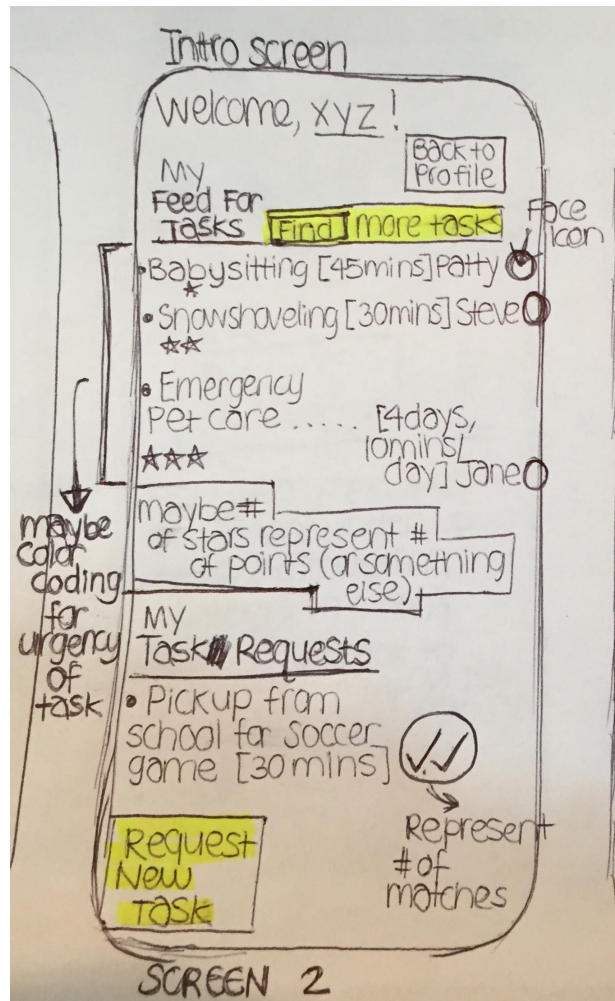 Intro screen
Welcome, xyz !
Back to
Profile
My
Feed For
Tasks
Find more tasks
Face
icon
• Babysitting [45mins] Patty
• Snowshoveling [30mins] Steve
• Emergency
Pet care ..... [4days,
10mins/
day] Jane
maybe #
of stars represent #
of points (or something
else)
maybe
color
coding
for
urgency
of
task
My
Task Requests
• Pickup from
school for soccer
game [30 mins]
Represent
# of
matches
Request
New
Task
SCREEN 2